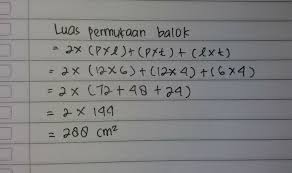 Luas permukaan balok
= 2x (pxl)+(pxt)+(lxt)
= 2x (12x6)+(12x4)+(6x4)
= 2x (72+48+24)
= 2 x 144
= 288 cm²